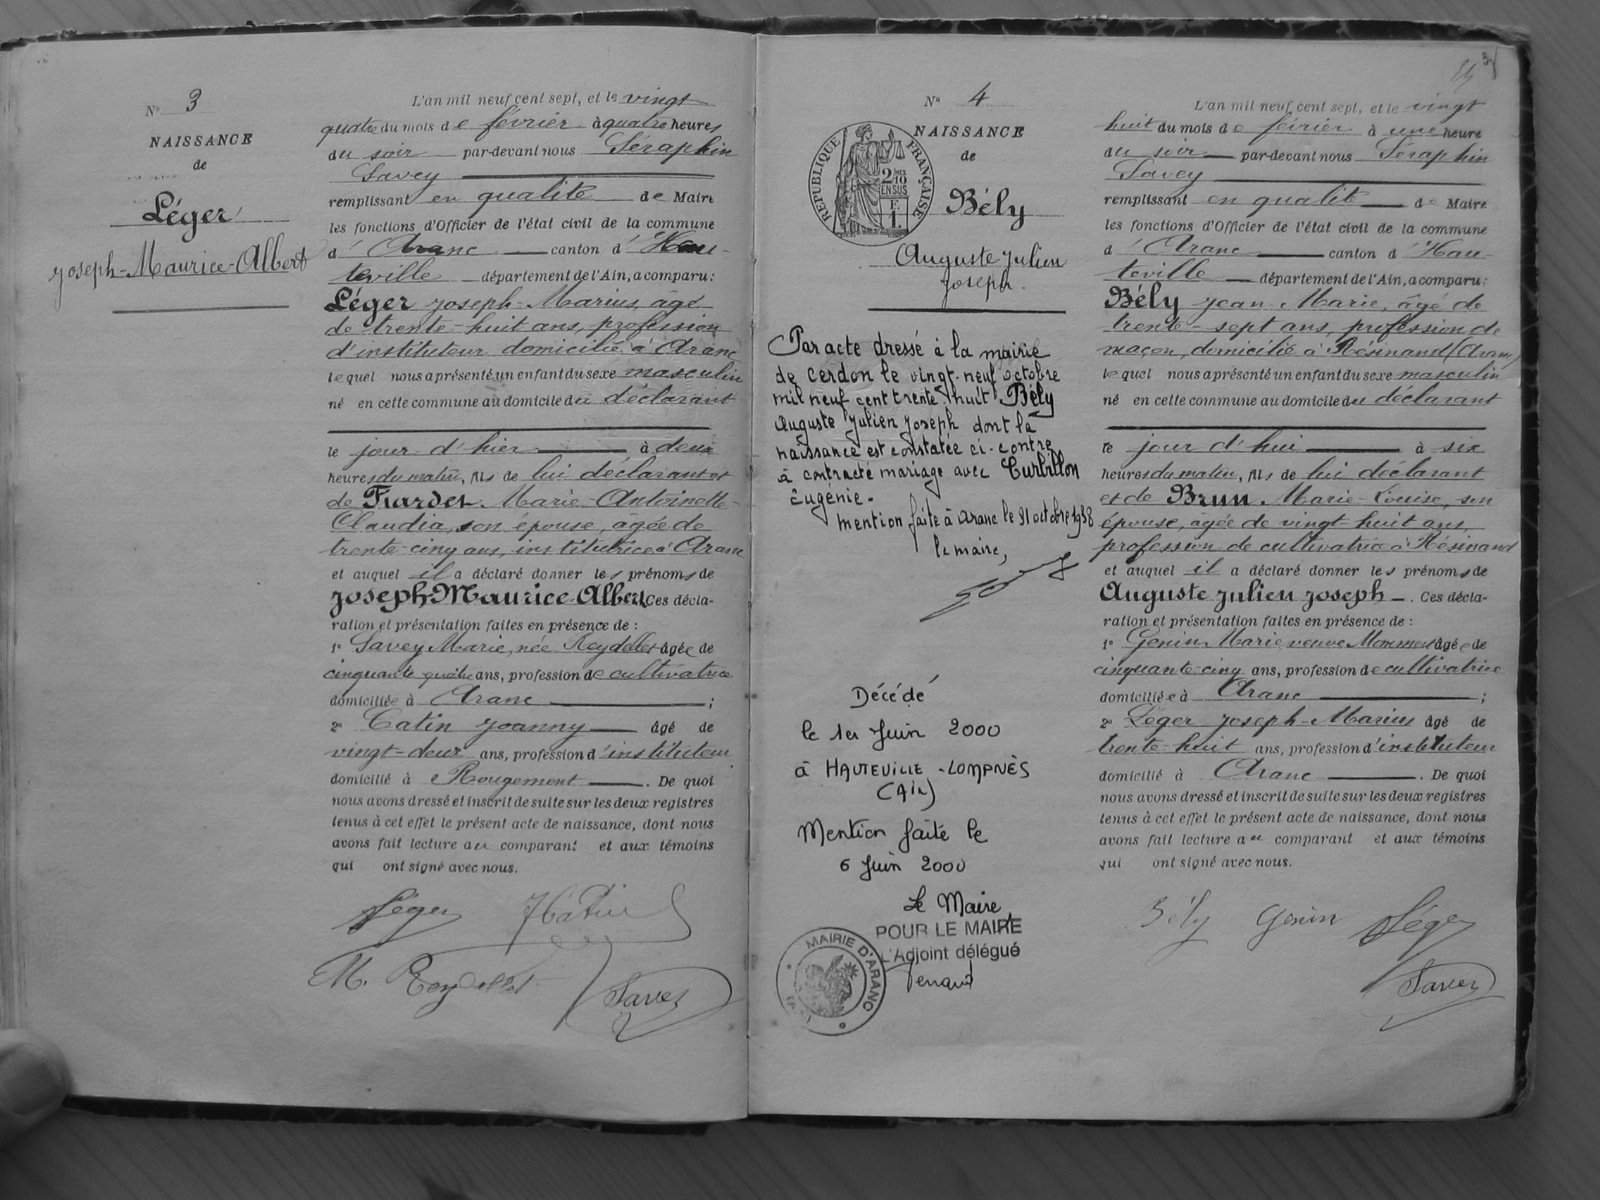 N° 3
NAISSANCE
de
Léger
Joseph-Maurice-Albert
L'an mil neuf cent sept, et le vingt
quatre du mois de février à quatre heures
du soir par-devant nous Séraphin
Savey
remplissant en qualité de Maire
les fonctions d'Officier de l'état civil de la commune
d'Aranc canton d'Hau-
teville département de l'Ain, a comparu:
Léger Joseph-Marius, âgé
de trente-huit ans, profession
d'instituteur domicilié à Aranc
lequel nous a présenté un enfant du sexe masculin
né en cette commune au domicile du déclarant
le jour d'hier à deux
heures du matin, fils de lui déclarant et
de Fiardet Marie-Antoinette-
Claudia, son épouse, âgée de
trente-cinq ans, institutrice à Aranc
et auquel il a déclaré donner les prénoms de
Joseph-Maurice-Albert. Ces décla-
ration et présentation faites en présence de :
1° Savey Marie, née Reydellet âgée de
cinquante quatre ans, profession de cultivatrice
domiciliée à Aranc ;
2° Catin Joanny âgé de
vingt-deux ans, profession d'instituteur
domicilié à Rougemont. De quoi
nous avons dressé et inscrit de suite sur les deux registres
tenus à cet effet le présent acte de naissance, dont nous
avons fait lecture au comparant et aux témoins
qui ont signé avec nous.
Léger JCatin
M. Reydellet Savey
N° 4
NAISSANCE
de
Bély
Auguste Julien
Joseph.
RÉPUBLIQUE FRANÇAISE
2/10
EN SUS
F.
1.
Par acte dressé à la mairie
de Cerdon le vingt-neuf octobre
mil neuf cent trente-huit Bély
Auguste Julien Joseph dont la
naissance est constatée ci-contre
à contracté mariage avec Curtillon
Eugénie.
Mention faite à Aranc le 31 octobre 1938
le maire,
Décédé
le 1er Juin 2000
à HAUTEVILLE-LOMPNÈS
(Ain)
Mention faite le
6 Juin 2000
Le Maire
POUR LE MAIRE
L'Adjoint délégué
MAIRIE D'ARANC
(AIN)
L'an mil neuf cent sept, et le vingt
huit du mois de février à une heure
du soir par-devant nous Séraphin
Savey
remplissant en qualité de Maire
les fonctions d'Officier de l'état civil de la commune
d'Aranc canton d'Hau-
teville département de l'Ain, a comparu:
Bély Jean-Marie, âgé de
trente-sept ans, profession de
maçon, domicilié à Résinand (Aranc)
lequel nous a présenté un enfant du sexe masculin
né en cette commune au domicile du déclarant
le jour d'hui à six
heures du matin, fils de lui déclarant
et de Brun Marie-Louise, son
épouse, âgée de vingt-huit ans,
profession de cultivatrice à Résinand
et auquel il a déclaré donner les prénoms de
Auguste Julien Joseph. Ces décla-
ration et présentation faites en présence de :
1° Genin Marie veuve âgée de
cinquante-cinq ans, profession de cultivatrice
domiciliée à Aranc ;
2° Léger Joseph-Marius âgé de
trente-huit ans, profession d'instituteur
domicilié à Aranc. De quoi
nous avons dressé et inscrit de suite sur les deux registres
tenus à cet effet le présent acte de naissance, dont nous
avons fait lecture au comparant et aux témoins
qui ont signé avec nous.
Bély Genin Léger
Savey